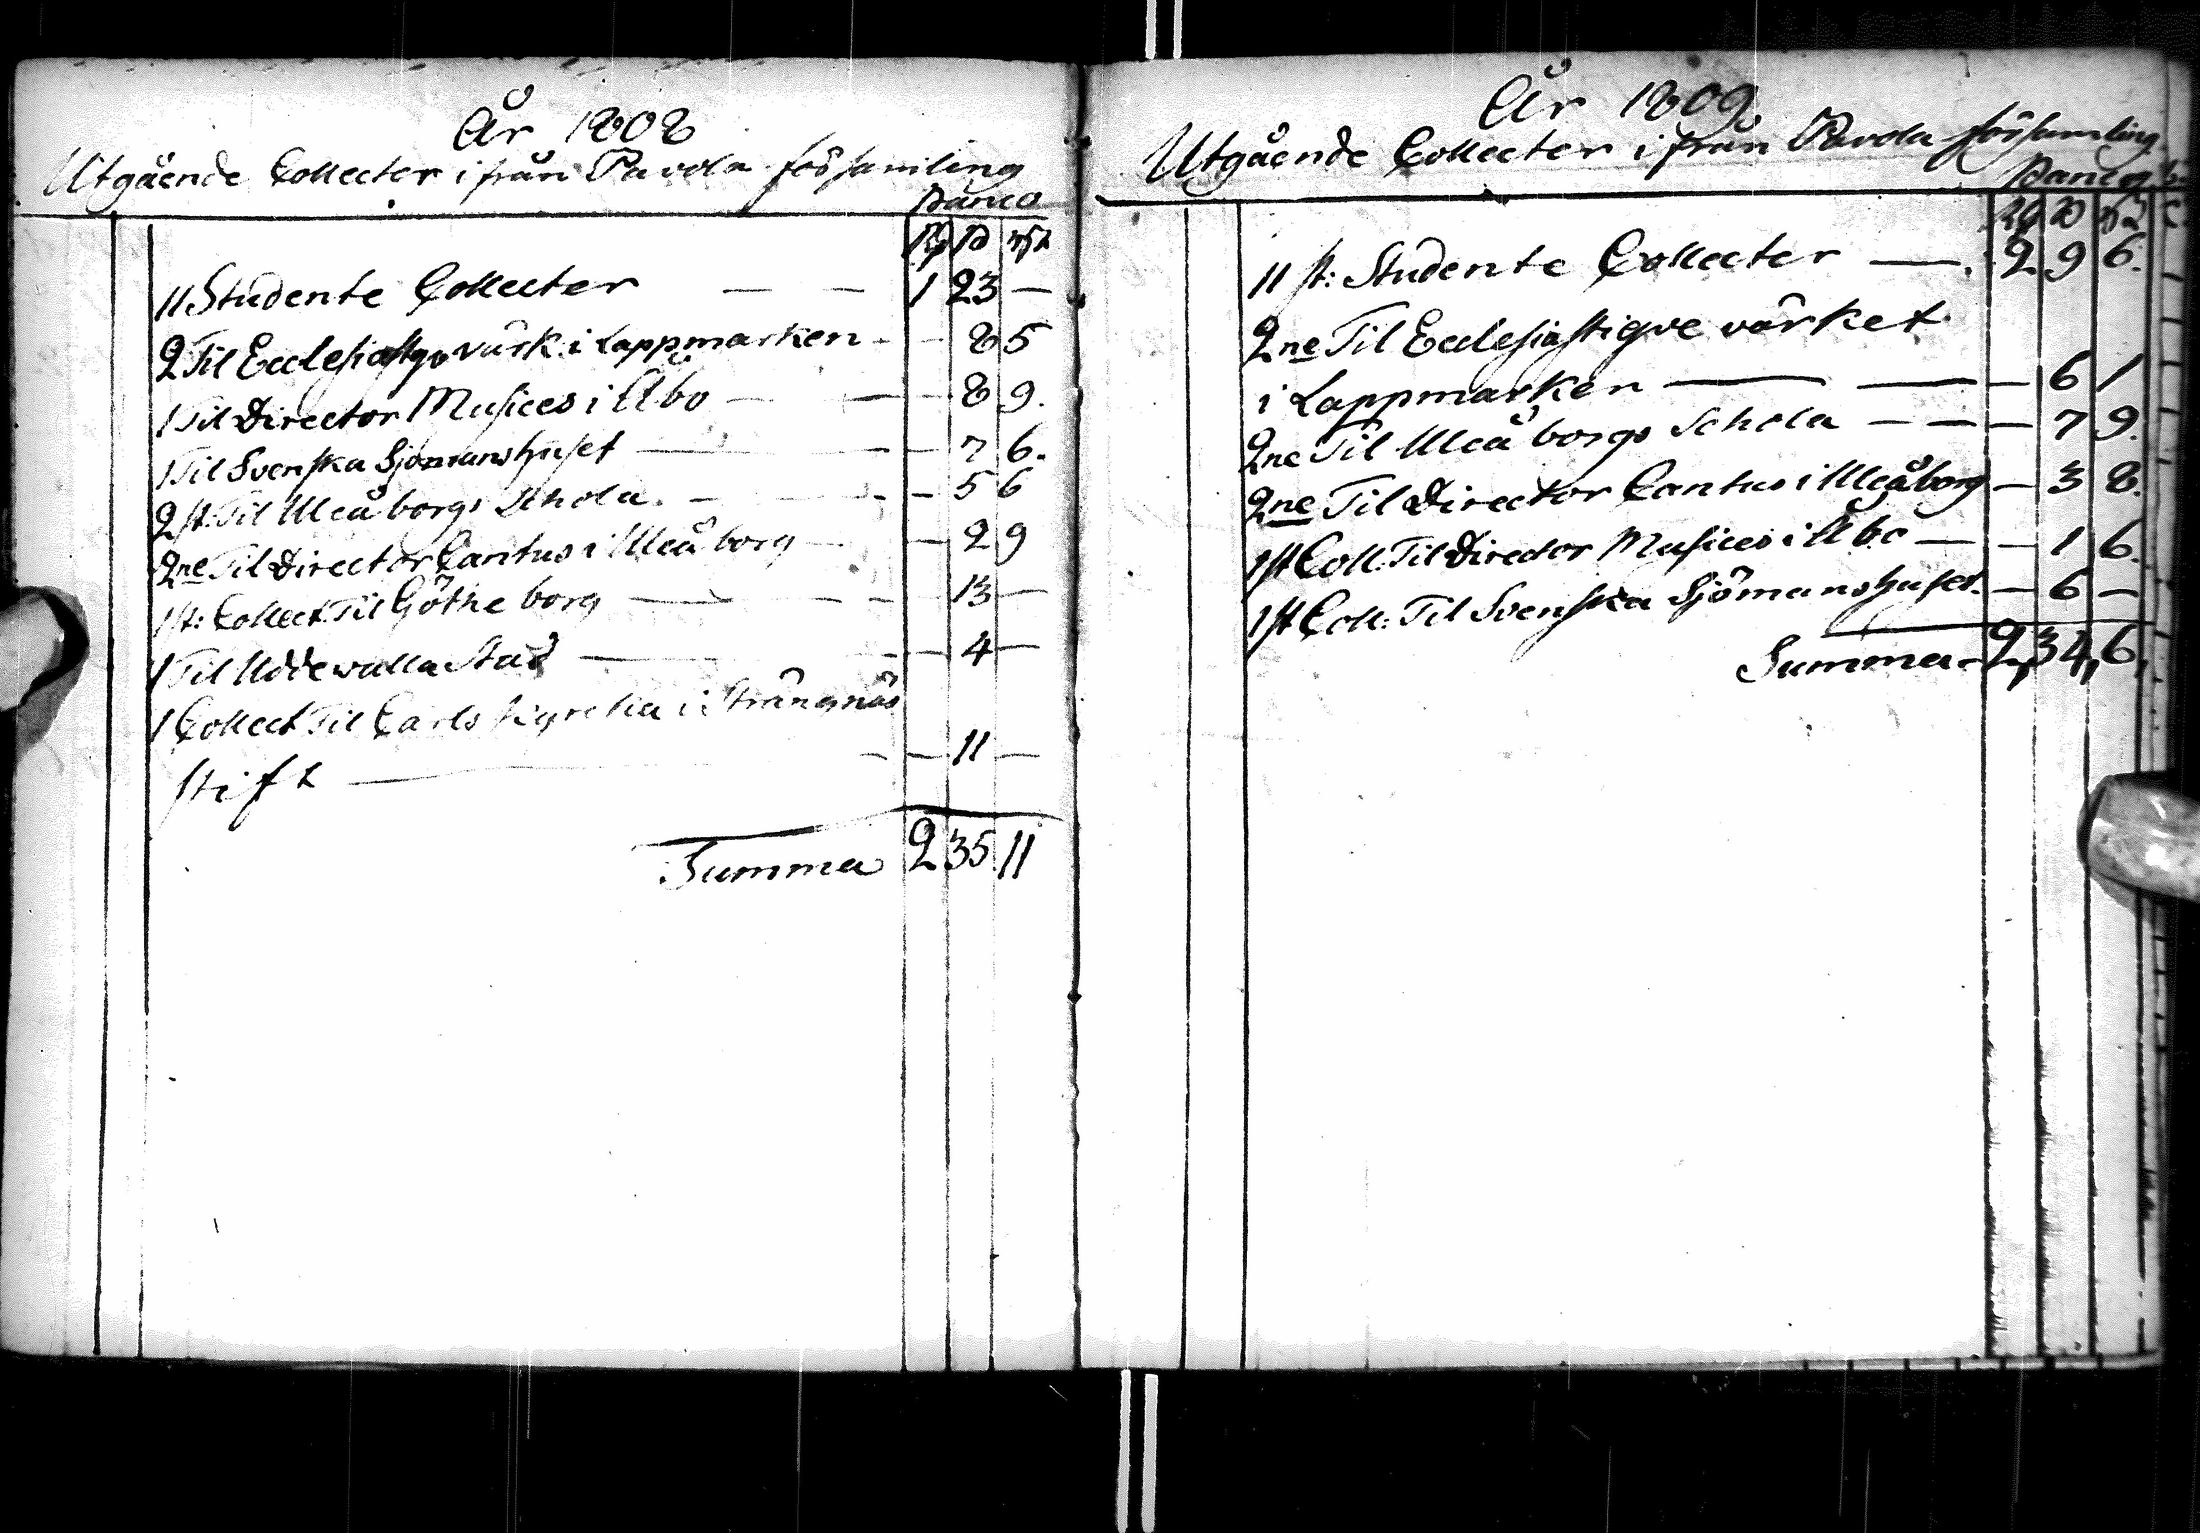 År 1808
Utgående Collecter ifrån Pavola församling
Banco
Rd ß rst
11 Studente Collecter — — 1 23 —
2 Til Ecclesiastq värk. i Lappmarken - - 8 5
1 Til Director Musices i Åbo — — - 8 9.
1 Til Svenska Sjömanshuset — — - 7 6.
2 st: Til Uleåborgs Schola. — - - 5 6
2ne Til Director Cantus i Uleåborg — — 2 9
1 st: Collect. Til Götheborg — — — - 13 —
1 Til Uddevalla Stad — — - 4 —
1 Collect Til Carls kyrcka i Strängnäs
stift — — — 11 —
Summa 2 35 11
År 1809
Utgående Collecter ifrån Pavola församling
Banco
Rd ß rst
11 st: Studente Collecter — . 2 9 6.
2ne Til Ecclesiastiqve värket
i Lappmarken — — — 6 1
2ne Til Uleåborgs Schola — — — 7 9.
2ne Til Director Cantus i Uleåborg — 3 8.
1 st Coll. Til Director Musices i Åbo — — 1 6.
1 st Coll: Til Svenska Sjömanshuset. — 6 —
Summa - 2, 34, 6,